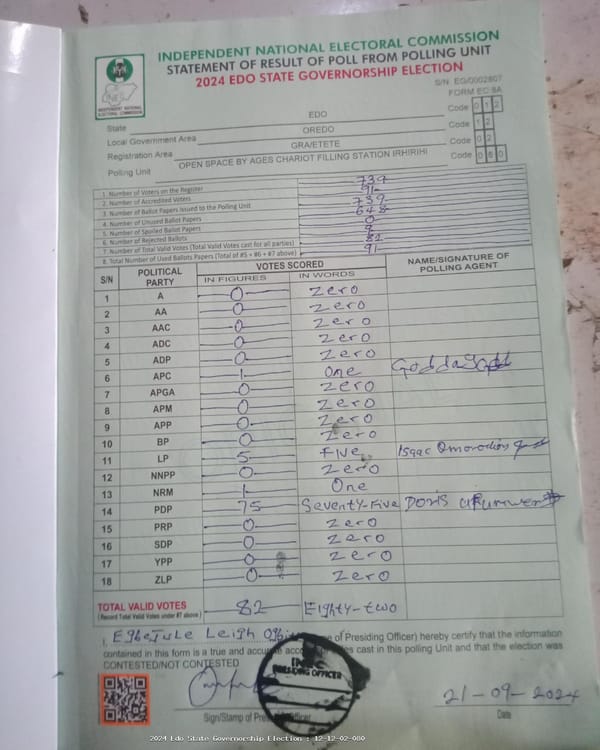 INDEPENDENT NATIONAL ELECTORAL COMMISSION
STATEMENT OF RESULT OF POLL FROM POLLING UNIT
2024 EDO STATE GOVERNORSHIP ELECTION
INEC
INDEPENDENT NATIONAL ELECTORAL COMMISSION
S/N: EG/0002807
FORM EC 8A
State EDO Code 0 1 2
Local Government Area OREDO Code 1 2
Registration Area GRA/ETETE Code 0 2
Polling Unit OPEN SPACE BY AGES CHARIOT FILLING STATION IRHIRIHI Code 0 8 0
1. Number of Voters on the Register 739
2. Number of Accredited Voters 91
3. Number of Ballot Papers Issued to the Polling Unit 739
4. Number of Unused Ballot Papers 648
5. Number of Spoiled Ballot Papers 0
6. Number of Rejected Ballots 9
7. Number of Total Valid Votes (Total Valid Votes cast for all parties) 82
8. Total Number of Used Ballots Papers (Total of #5 + #6 + #7 above) 91
S/N POLITICAL PARTY VOTES SCORED NAME/SIGNATURE OF POLLING AGENT
IN FIGURES IN WORDS
1 A 0 Zero
2 AA 0 Zero
3 AAC 0 Zero
4 ADC 0 Zero
5 ADP 0 Zero
6 APC 1 One
7 APGA 0 Zero
8 APM 0 Zero
9 APP 0 Zero
10 BP 0 Zero
11 LP 5 Five Isaac
12 NNPP 0 Zero
13 NRM 1 One
14 PDP 75 Seventy-Five Doris
15 PRP 0 Zero
16 SDP 0 Zero
17 YPP 0 Zero
18 ZLP 0 Zero
TOTAL VALID VOTES 82 Eighty-two
(Record Total Valid Votes under #7 above)
I, Leigh of Presiding Officer) hereby certify that the information
contained in this form is a true and cast in this polling Unit and that the election was
CONTESTED/NOT CONTESTED
INEC
PRESIDING OFFICER
21-09-2024
Sign/Stamp of Officer Date
2024 Edo State Governorship Election : 12-12-02-080